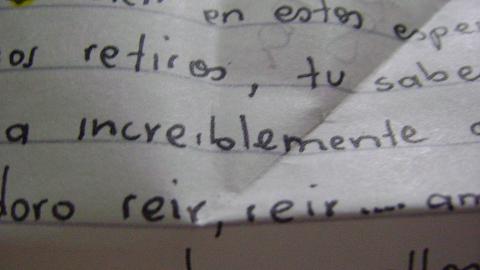 en estos espe
os retiros, tu sabe
a increiblemente
doro reir, reir.... am